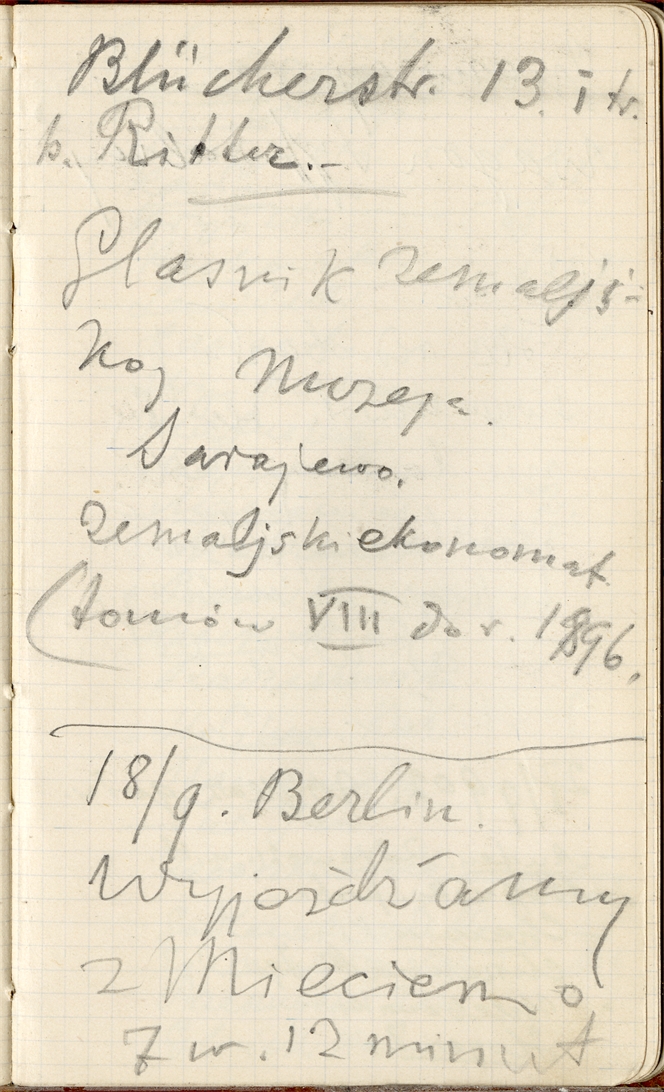 Blücherstr. 13. I tr.
b. Ritter.–
Glasnik zemaljs-
kog Muzeja.
Sarajewo.
Zemaljski ekonomat
(tomów VIII do r. 1896.
18/9. Berlin.
Wyjeżdżamy
z Mieciem o
7 w. 12 minut